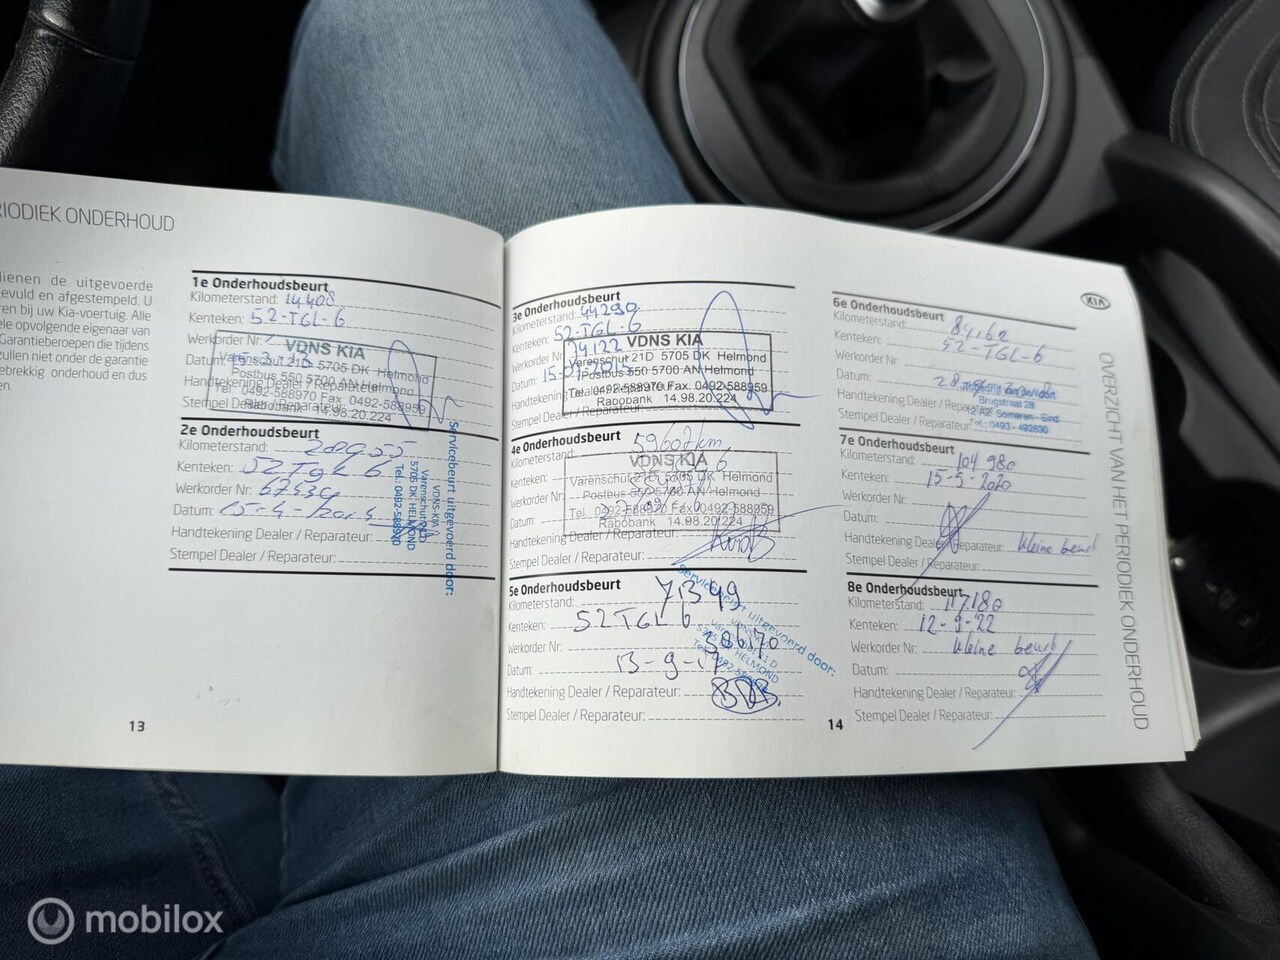 RIODIEK ONDERHOUD
dienen de uitgevoerde
evuld en afgestempeld. U
ren bij uw Kia-voertuig. Alle
ele opvolgende eigenaar van
Garantieberoepen die tijdens
zullen niet onder de garantie
ebrekkig onderhoud en dus
en.
1e Onderhoudsbeurt
Kilometerstand: 14408
Kenteken: 52-TGL-6
Werkorder Nr:
Datum:
Handtekening Dealer / Reparateur:
Stempel Dealer / Reparateur:
VDNS KIA
Varenschut 21D 5705 DK Helmond
Postbus 550 5700 AN Helmond
Tel. 0492-588970 Fax 0492-588959
Rabobank 14.98.20.224
2e Onderhoudsbeurt
Kilometerstand: 28955
Kenteken: 52TGL 6
Werkorder Nr: 67439
Datum: 15-4-2014
Handtekening Dealer / Reparateur:
Stempel Dealer / Reparateur:
Servicebeurt uitgevoerd door:
VDNS-KIA
Varenschut 21 D
5705 DK HELMOND
Tel.: 0492-588970
13
3e Onderhoudsbeurt
Kilometerstand: 44290
Kenteken: 52-TGL-6
Werkorder Nr: 74122
Datum: 15-07-2015
Handtekening Dealer / Reparateur:
Stempel Dealer / Reparateur:
VDNS KIA
Varenschut 21D 5705 DK Helmond
Postbus 550 5700 AN Helmond
Tel. 0492-588970 Fax. 0492-588959
Rabobank 14.98.20.224
4e Onderhoudsbeurt
Kilometerstand: 59602km
Kenteken:
Werkorder Nr:
Datum:
Handtekening Dealer / Reparateur:
Stempel Dealer / Reparateur:
VDNS KIA
Varenschut 21D 5705 DK Helmond
Postbus 550 5700 AN Helmond
Tel. 0492-588970 Fax 0492-588959
Rabobank 14.98.20.224
5e Onderhoudsbeurt
Kilometerstand: 71399
Kenteken: 52TGL 6
Werkorder Nr:
Datum: 13-9-17
Handtekening Dealer / Reparateur:
Stempel Dealer / Reparateur:
Servicebeurt uitgevoerd door:
HELMOND
14
6e Onderhoudsbeurt
Kilometerstand: 84162
Kenteken: 52-TGL-6
Werkorder Nr:
Datum:
Handtekening Dealer / Reparateur:
Stempel Dealer / Reparateur:
Brugstraat 28
Someren - Eind
Tel.: 0493 - 492630
7e Onderhoudsbeurt
Kilometerstand: 104 980
Kenteken: 15-5-2020
Werkorder Nr:
Datum:
Handtekening Dealer / Reparateur: kleine beurt
Stempel Dealer / Reparateur:
8e Onderhoudsbeurt
Kilometerstand: 117180
Kenteken: 12-9-22
Werkorder Nr: kleine beurt
Datum:
Handtekening Dealer / Reparateur:
Stempel Dealer / Reparateur:
KIA
OVERZICHT VAN HET PERIODIEK ONDERHOUD
mobilox